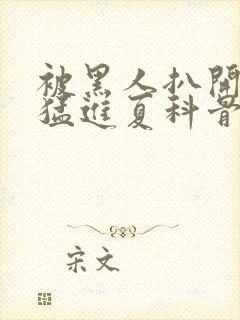 被黑人扒開
猛進夏科背
宋文